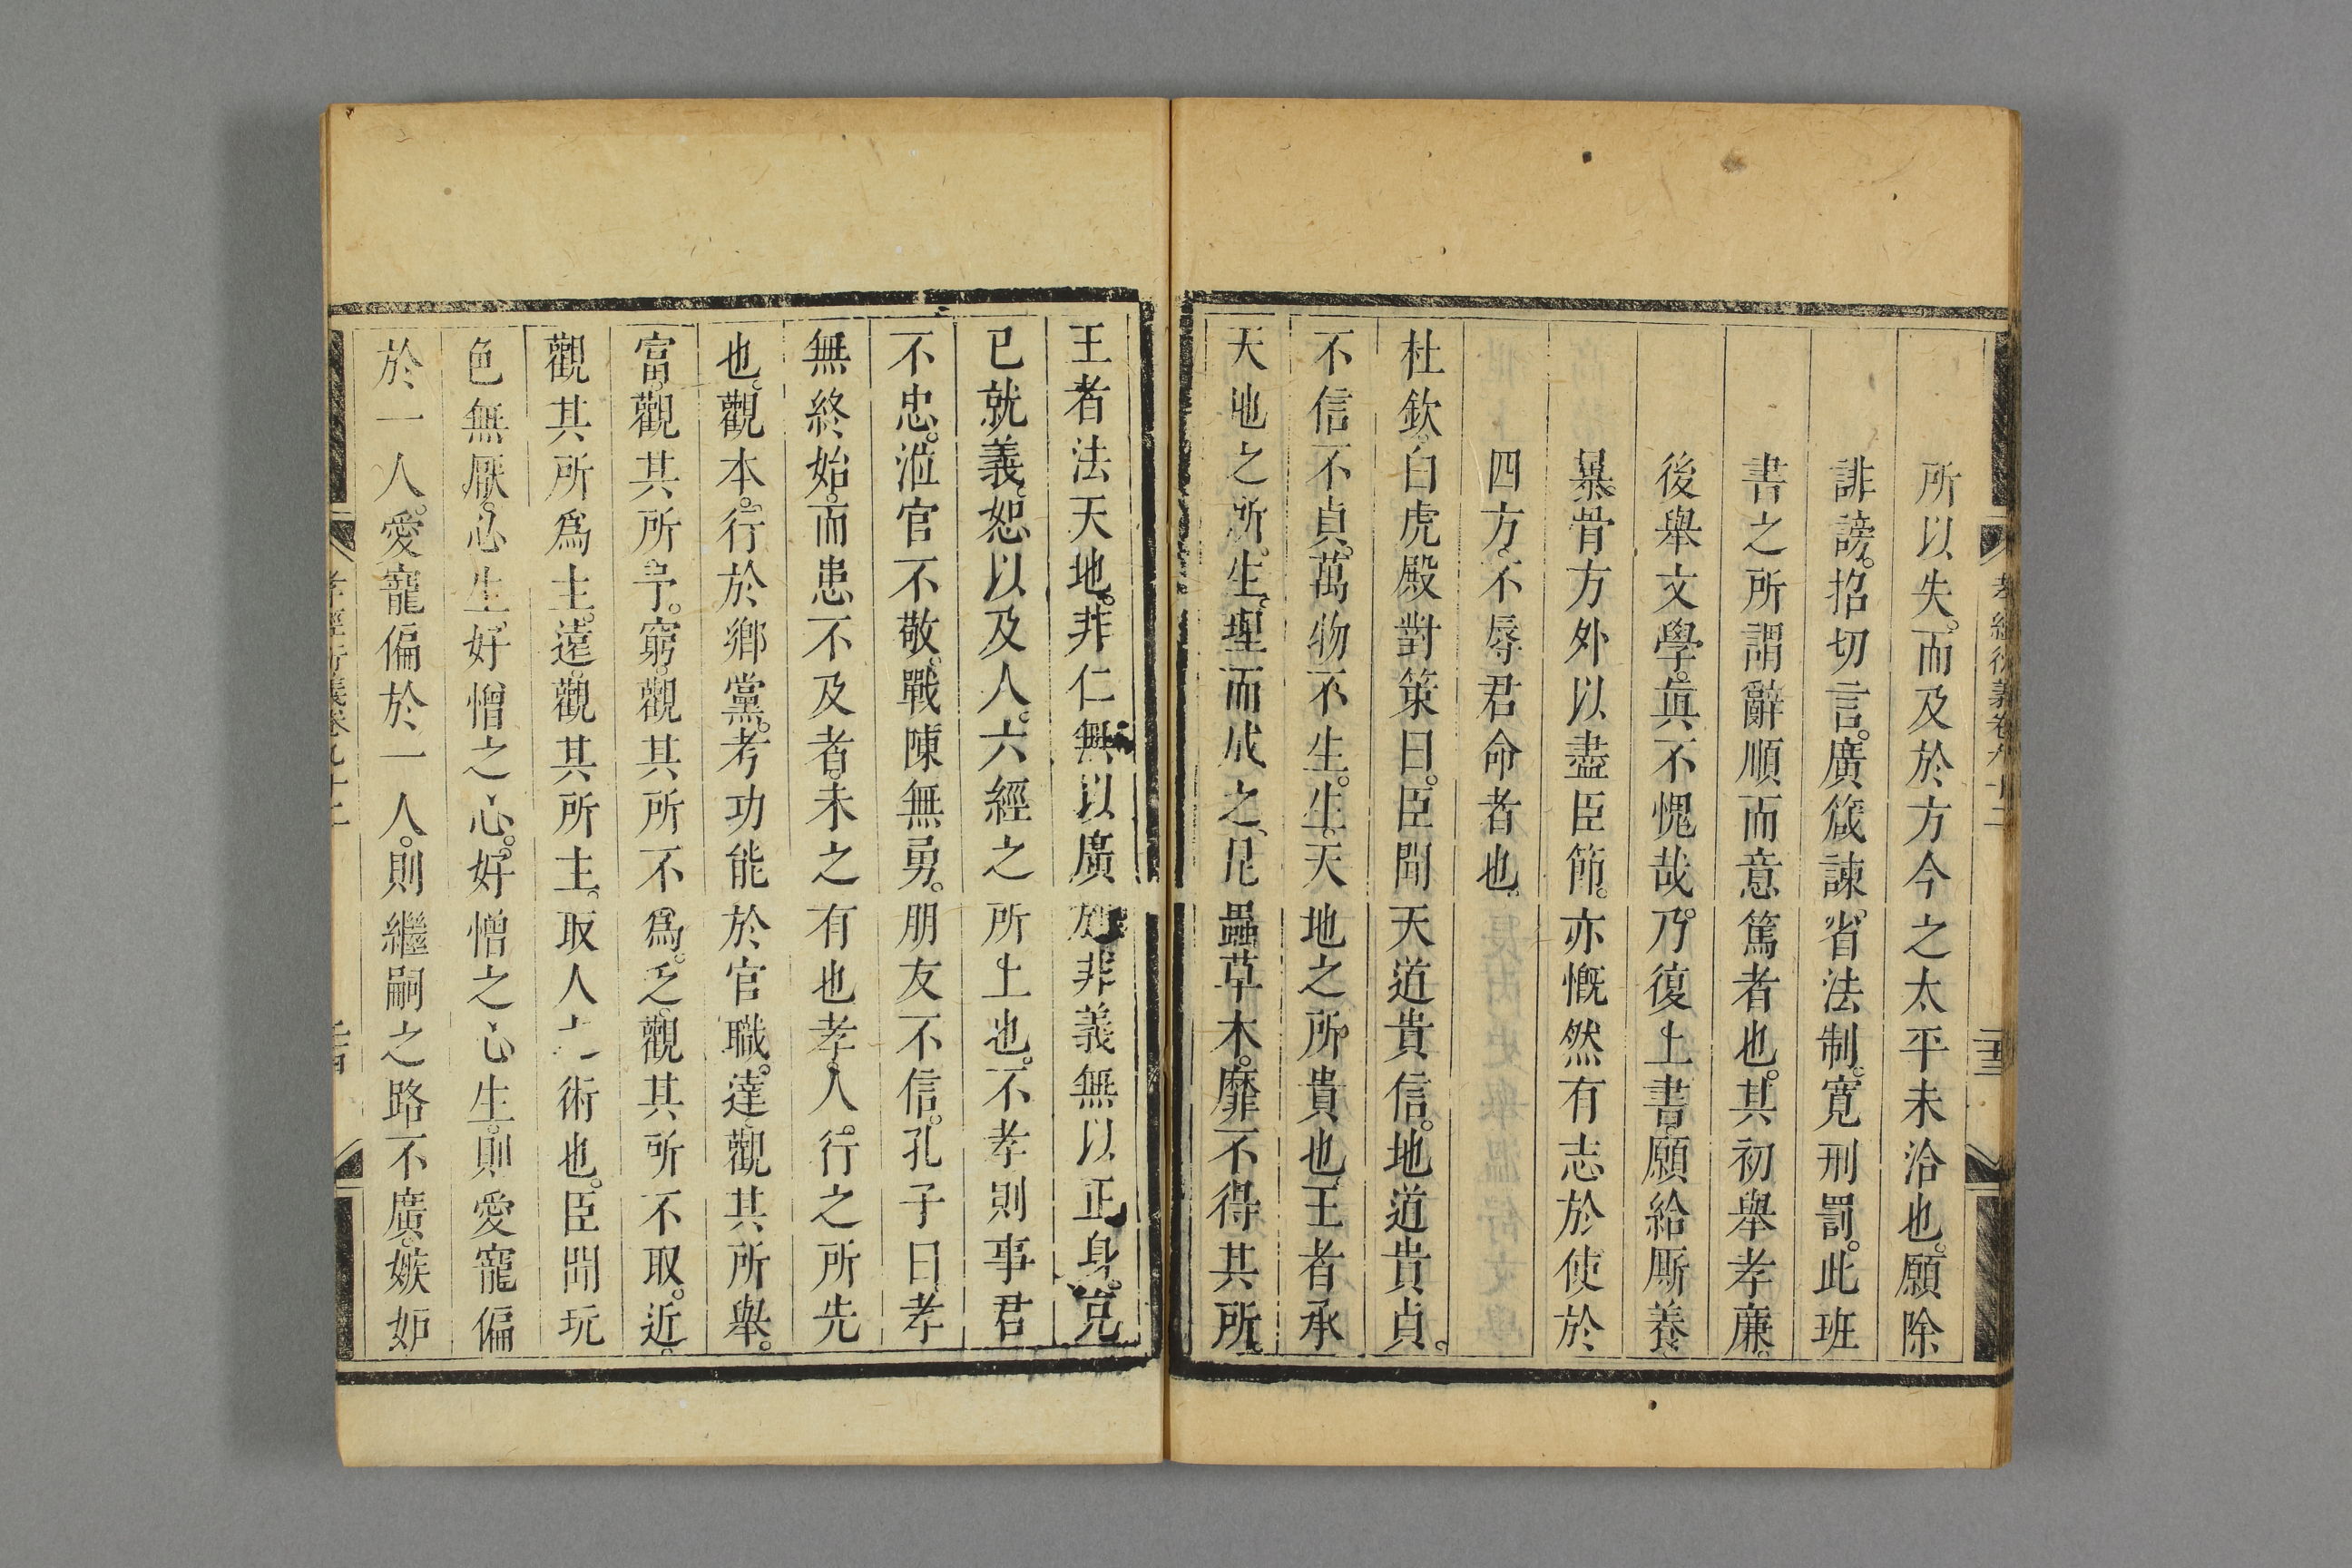 孝經衍義卷九十二
所以失。而及於方今之太平未洽也。願除
誹謗。招切言。廣箴諫。省法制。寬刑罰。此班
書之所謂辭順而意篤者也。其初舉孝廉。
後舉文學。眞不愧哉。乃復上書。願給厮養、
暴骨方外以盡臣節。亦慨然有志於使於
四方、不辱君命者也。
杜欽。白虎殿對策曰。臣聞天道貴信。地道貴貞。
不信不貞。萬物不生。生。天地之所貴也。王者承
天地之所生。理而成之、昆蟲草木。靡不得其所。
王者法天地。非仁無以廣施非義無以正身。克
已就義。恕以及人。六經之所上也。不孝則事君
不忠。涖官不敬。戰陳無勇。朋友不信。孔子曰孝
無終始。而患不及者。未之有也孝。人。行之所先
也。觀本。行於鄉黨。考功能於官職。達觀其所舉。
富。觀其所予。窮。觀其所不爲。乏。觀其所不取。近。
觀其所爲主。遠。觀其所主。取人之術也。臣聞玩
色無厭。必生好憎之心。好憎之心生。則愛寵偏
於一人。愛寵偏於一人。則繼嗣之路不廣。嫉妒
孝經衍義卷九十二